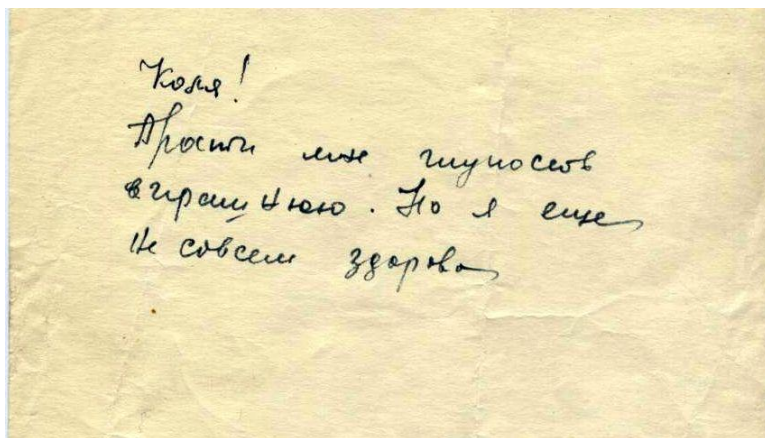 Коля!
Прости мне глупость
вчерашнюю. Но я еще
не совсем здорова